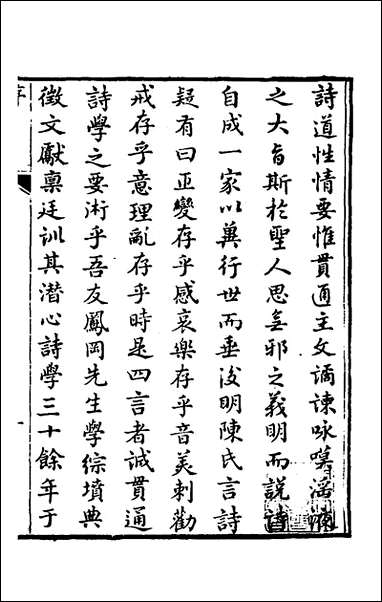 詩道性情要惟貫通主文譎諫咏嘆滛泆
之大旨斯於聖人思無邪之義明而說詩
自成一家以冀行世而垂後明陳氏言詩
疑有曰正變存乎感哀樂存乎音美刺勸
戒存乎意理亂存乎時是四言者誠貫通
詩學之要術乎吾友鳳岡先生學綜墳典
徵文獻稟廷訓其潛心詩學三十餘年于
序
一